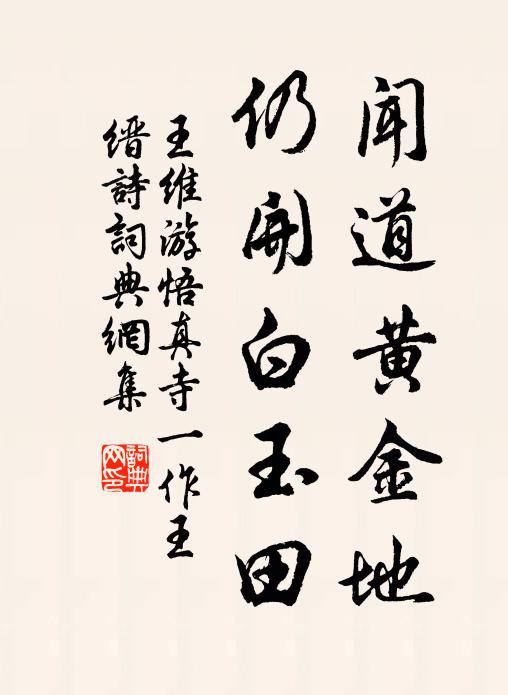 闻道黄金地
仍開白玉田
王維游悟真寺一作王
缙詩詞典網集
詞典
网印